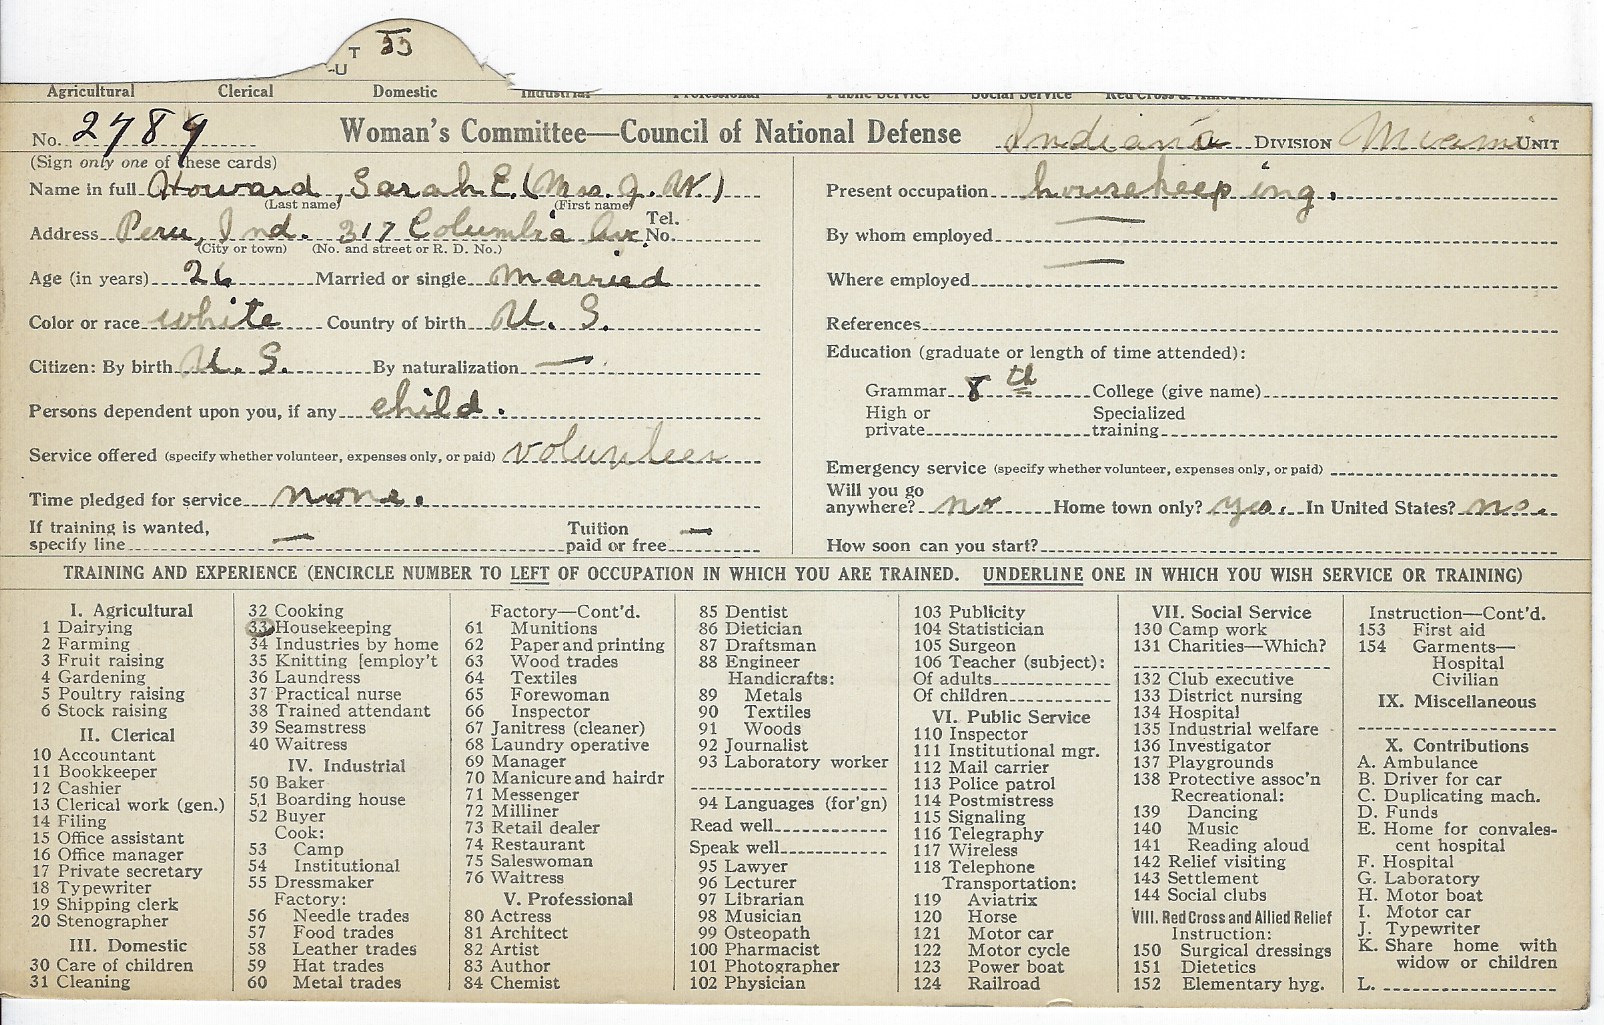 T 33
-U
Agricultural Clerical Domestic Industrial Professional Public Service Social Service
No. 2789 Woman's Committee—Council of National Defense Indiana DIVISION Miami UNIT
(Sign only one of these cards)
Name in full Howard, Sarah E. (Mrs. J. W.)
(Last name) (First name)
Address Peru, Ind. 317 Columbia Ave. Tel. No.
(City or town) (No. and street or R. D. No.)
Age (in years) 26 Married or single married
Color or race white Country of birth U. S.
Citizen: By birth U. S. By naturalization —
Persons dependent upon you, if any child.
Service offered (specify whether volunteer, expenses only, or paid) volunteer
Time pledged for service none.
If training is wanted,
specify line — Tuition paid or free —
Present occupation housekeeping.
By whom employed —
Where employed —
References
Education (graduate or length of time attended):
Grammar 8th College (give name)
High or private Specialized training
Emergency service (specify whether volunteer, expenses only, or paid)
Will you go
anywhere? no Home town only? yes. In United States? no.
How soon can you start?
TRAINING AND EXPERIENCE (ENCIRCLE NUMBER TO LEFT OF OCCUPATION IN WHICH YOU ARE TRAINED. UNDERLINE ONE IN WHICH YOU WISH SERVICE OR TRAINING)
I. Agricultural
1 Dairying
2 Farming
3 Fruit raising
4 Gardening
5 Poultry raising
6 Stock raising
II. Clerical
10 Accountant
11 Bookkeeper
12 Cashier
13 Clerical work (gen.)
14 Filing
15 Office assistant
16 Office manager
17 Private secretary
18 Typewriter
19 Shipping clerk
20 Stenographer
III. Domestic
30 Care of children
31 Cleaning
32 Cooking
33 Housekeeping
34 Industries by home
35 Knitting [employ't
36 Laundress
37 Practical nurse
38 Trained attendant
39 Seamstress
40 Waitress
IV. Industrial
50 Baker
51 Boarding house
52 Buyer
Cook:
53 Camp
54 Institutional
55 Dressmaker
Factory:
56 Needle trades
57 Food trades
58 Leather trades
59 Hat trades
60 Metal trades
Factory—Cont'd.
61 Munitions
62 Paper and printing
63 Wood trades
64 Textiles
65 Forewoman
66 Inspector
67 Janitress (cleaner)
68 Laundry operative
69 Manager
70 Manicure and hairdr
71 Messenger
72 Milliner
73 Retail dealer
74 Restaurant
75 Saleswoman
76 Waitress
V. Professional
80 Actress
81 Architect
82 Artist
83 Author
84 Chemist
85 Dentist
86 Dietician
87 Draftsman
88 Engineer
Handicrafts:
89 Metals
90 Textiles
91 Woods
92 Journalist
93 Laboratory worker
94 Languages (for'gn)
Read well
Speak well
95 Lawyer
96 Lecturer
97 Librarian
98 Musician
99 Osteopath
100 Pharmacist
101 Photographer
102 Physician
103 Publicity
104 Statistician
105 Surgeon
106 Teacher (subject):
Of adults
Of children
VI. Public Service
110 Inspector
111 Institutional mgr.
112 Mail carrier
113 Police patrol
114 Postmistress
115 Signaling
116 Telegraphy
117 Wireless
118 Telephone
Transportation:
119 Aviatrix
120 Horse
121 Motor car
122 Motor cycle
123 Power boat
124 Railroad
VII. Social Service
130 Camp work
131 Charities—Which?
132 Club executive
133 District nursing
134 Hospital
135 Industrial welfare
136 Investigator
137 Playgrounds
138 Protective assoc'n
Recreational:
139 Dancing
140 Music
141 Reading aloud
142 Relief visiting
143 Settlement
144 Social clubs
VIII. Red Cross and Allied Relief
Instruction:
150 Surgical dressings
151 Dietetics
152 Elementary hyg.
Instruction—Cont'd.
153 First aid
154 Garments—
Hospital
Civilian
IX. Miscellaneous
X. Contributions
A. Ambulance
B. Driver for car
C. Duplicating mach.
D. Funds
E. Home for convales-
cent hospital
F. Hospital
G. Laboratory
H. Motor boat
I. Motor car
J. Typewriter
K. Share home with
widow or children
L.